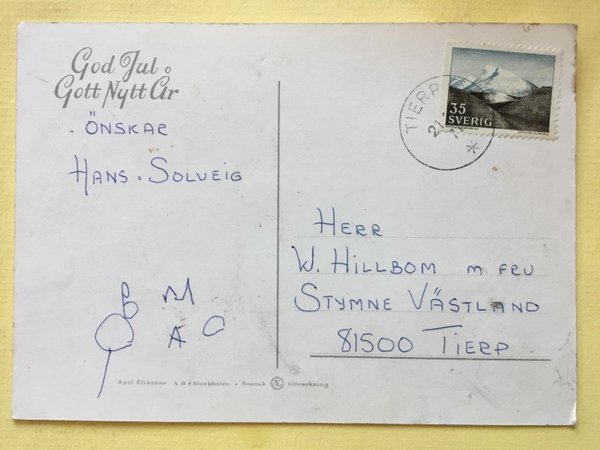 God Jul o
Gott Nytt År
ÖNSKAR
HANS. SOLVEIG
HERR
W. HILLBOM M FRU
STYMNE VÄSTLAND
81500 TIERP
35
SVERIG
TIERP
Axel Eliasson A.B. Stockholm • Svensk Æ tillverkning